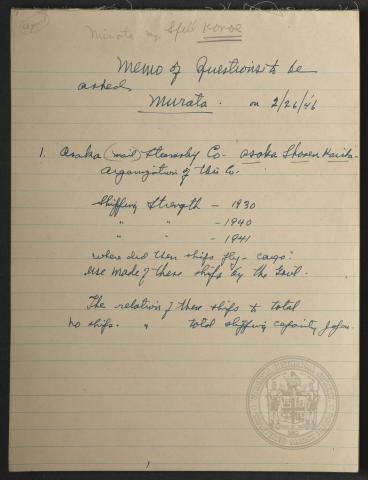 Murata may spell Konoe
Memo of Questions to be
asked
Murata. on 2/26/46
1. Osaka (mail) Steamship Co - Osaka Shosen Kaisha -
Organization of this Co.
Shipping Strength - 1930
" " - 1940
" " - 1941
where did these ships ply - cargo?
use made of these ships by the Govt.
The relation of these ships to total
no ships. " total shipping capacity Japan.